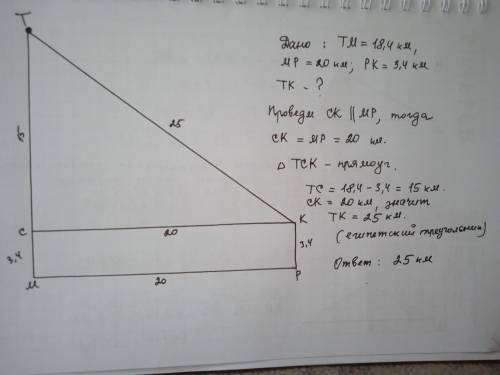 T
Дано : TM = 18,4 км,
MP = 20 км; PK = 3,4 км
TK - ?
Проведм CK || MP, тогда
CK = MP = 20 км.
△ TCK - прямоуг.
TC = 18,4 - 3,4 = 15 км.
CK = 20 км, значит
TK = 25 км.
(египетский треугольник)
Ответ : 25 км
25
15
C
20
K
3,4
3,4
M
20
P